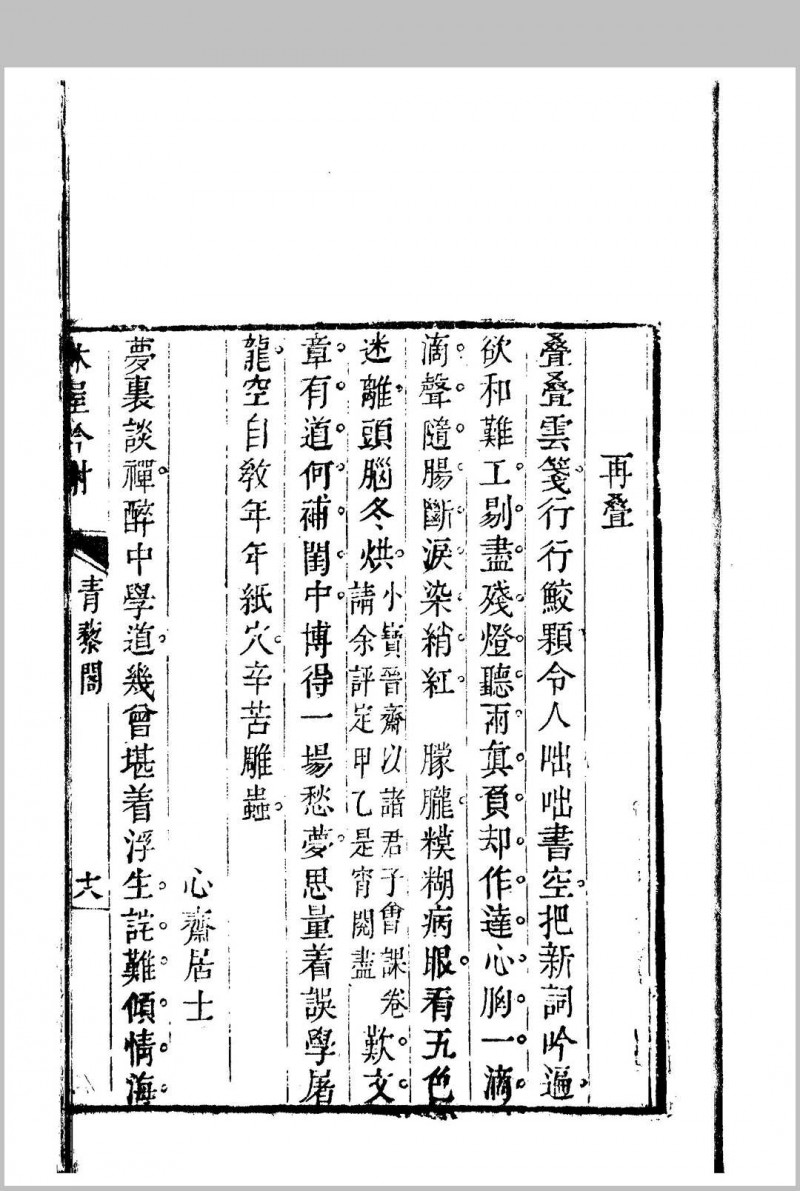 再疊
疊疊雲箋行行鮫顆令人咄咄書空把新詞吟遍
欲和難工剔盡殘燈聽雨真負却作達心胸一滴
滴聲隨腸斷淚染綃紅　朦朧糢糊病眼看五色
迷離頭腦冬烘小寶晉齋以諸君子會課卷請余評定甲乙是宵閱盡歎文
章有道何補閨中博得一場愁夢思量着誤學屠
龍空自敎年年紙穴辛苦雕蟲
心齋居士
夢裏談禪醉中學道幾曾堪着浮生詫難傾情海
林屋吟榭
青藜閣
十八